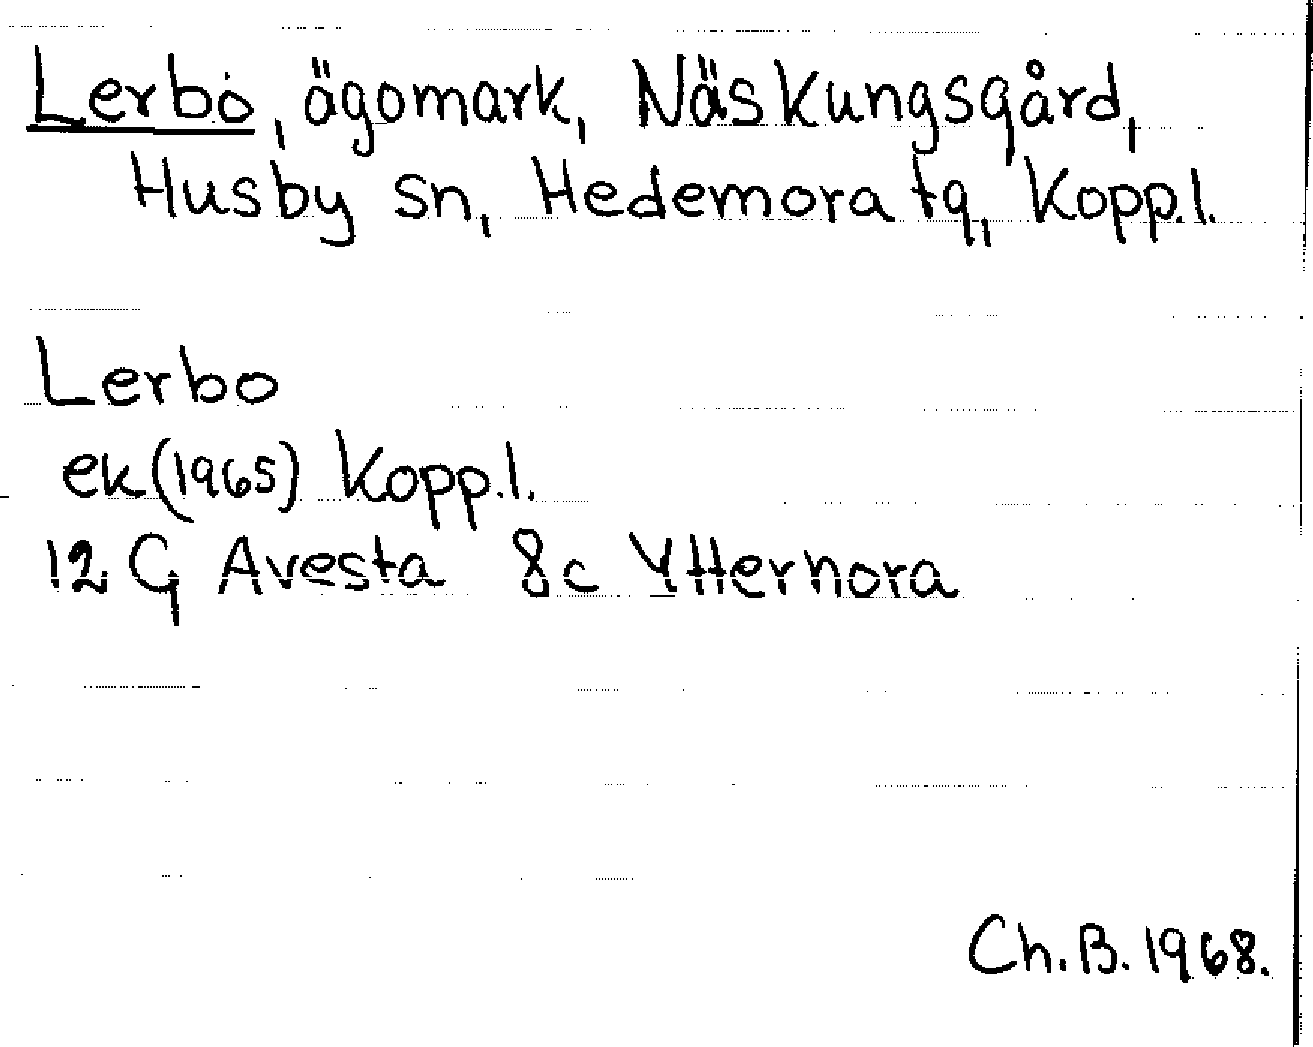 Lerbo, ägomark, Näs Kungsgård,
Husby sn, Hedemora tg, Kopp.l.
Lerbo
ek (1965) Kopp.l.
12 G Avesta 8c Ytternora
Ch.B. 1968.